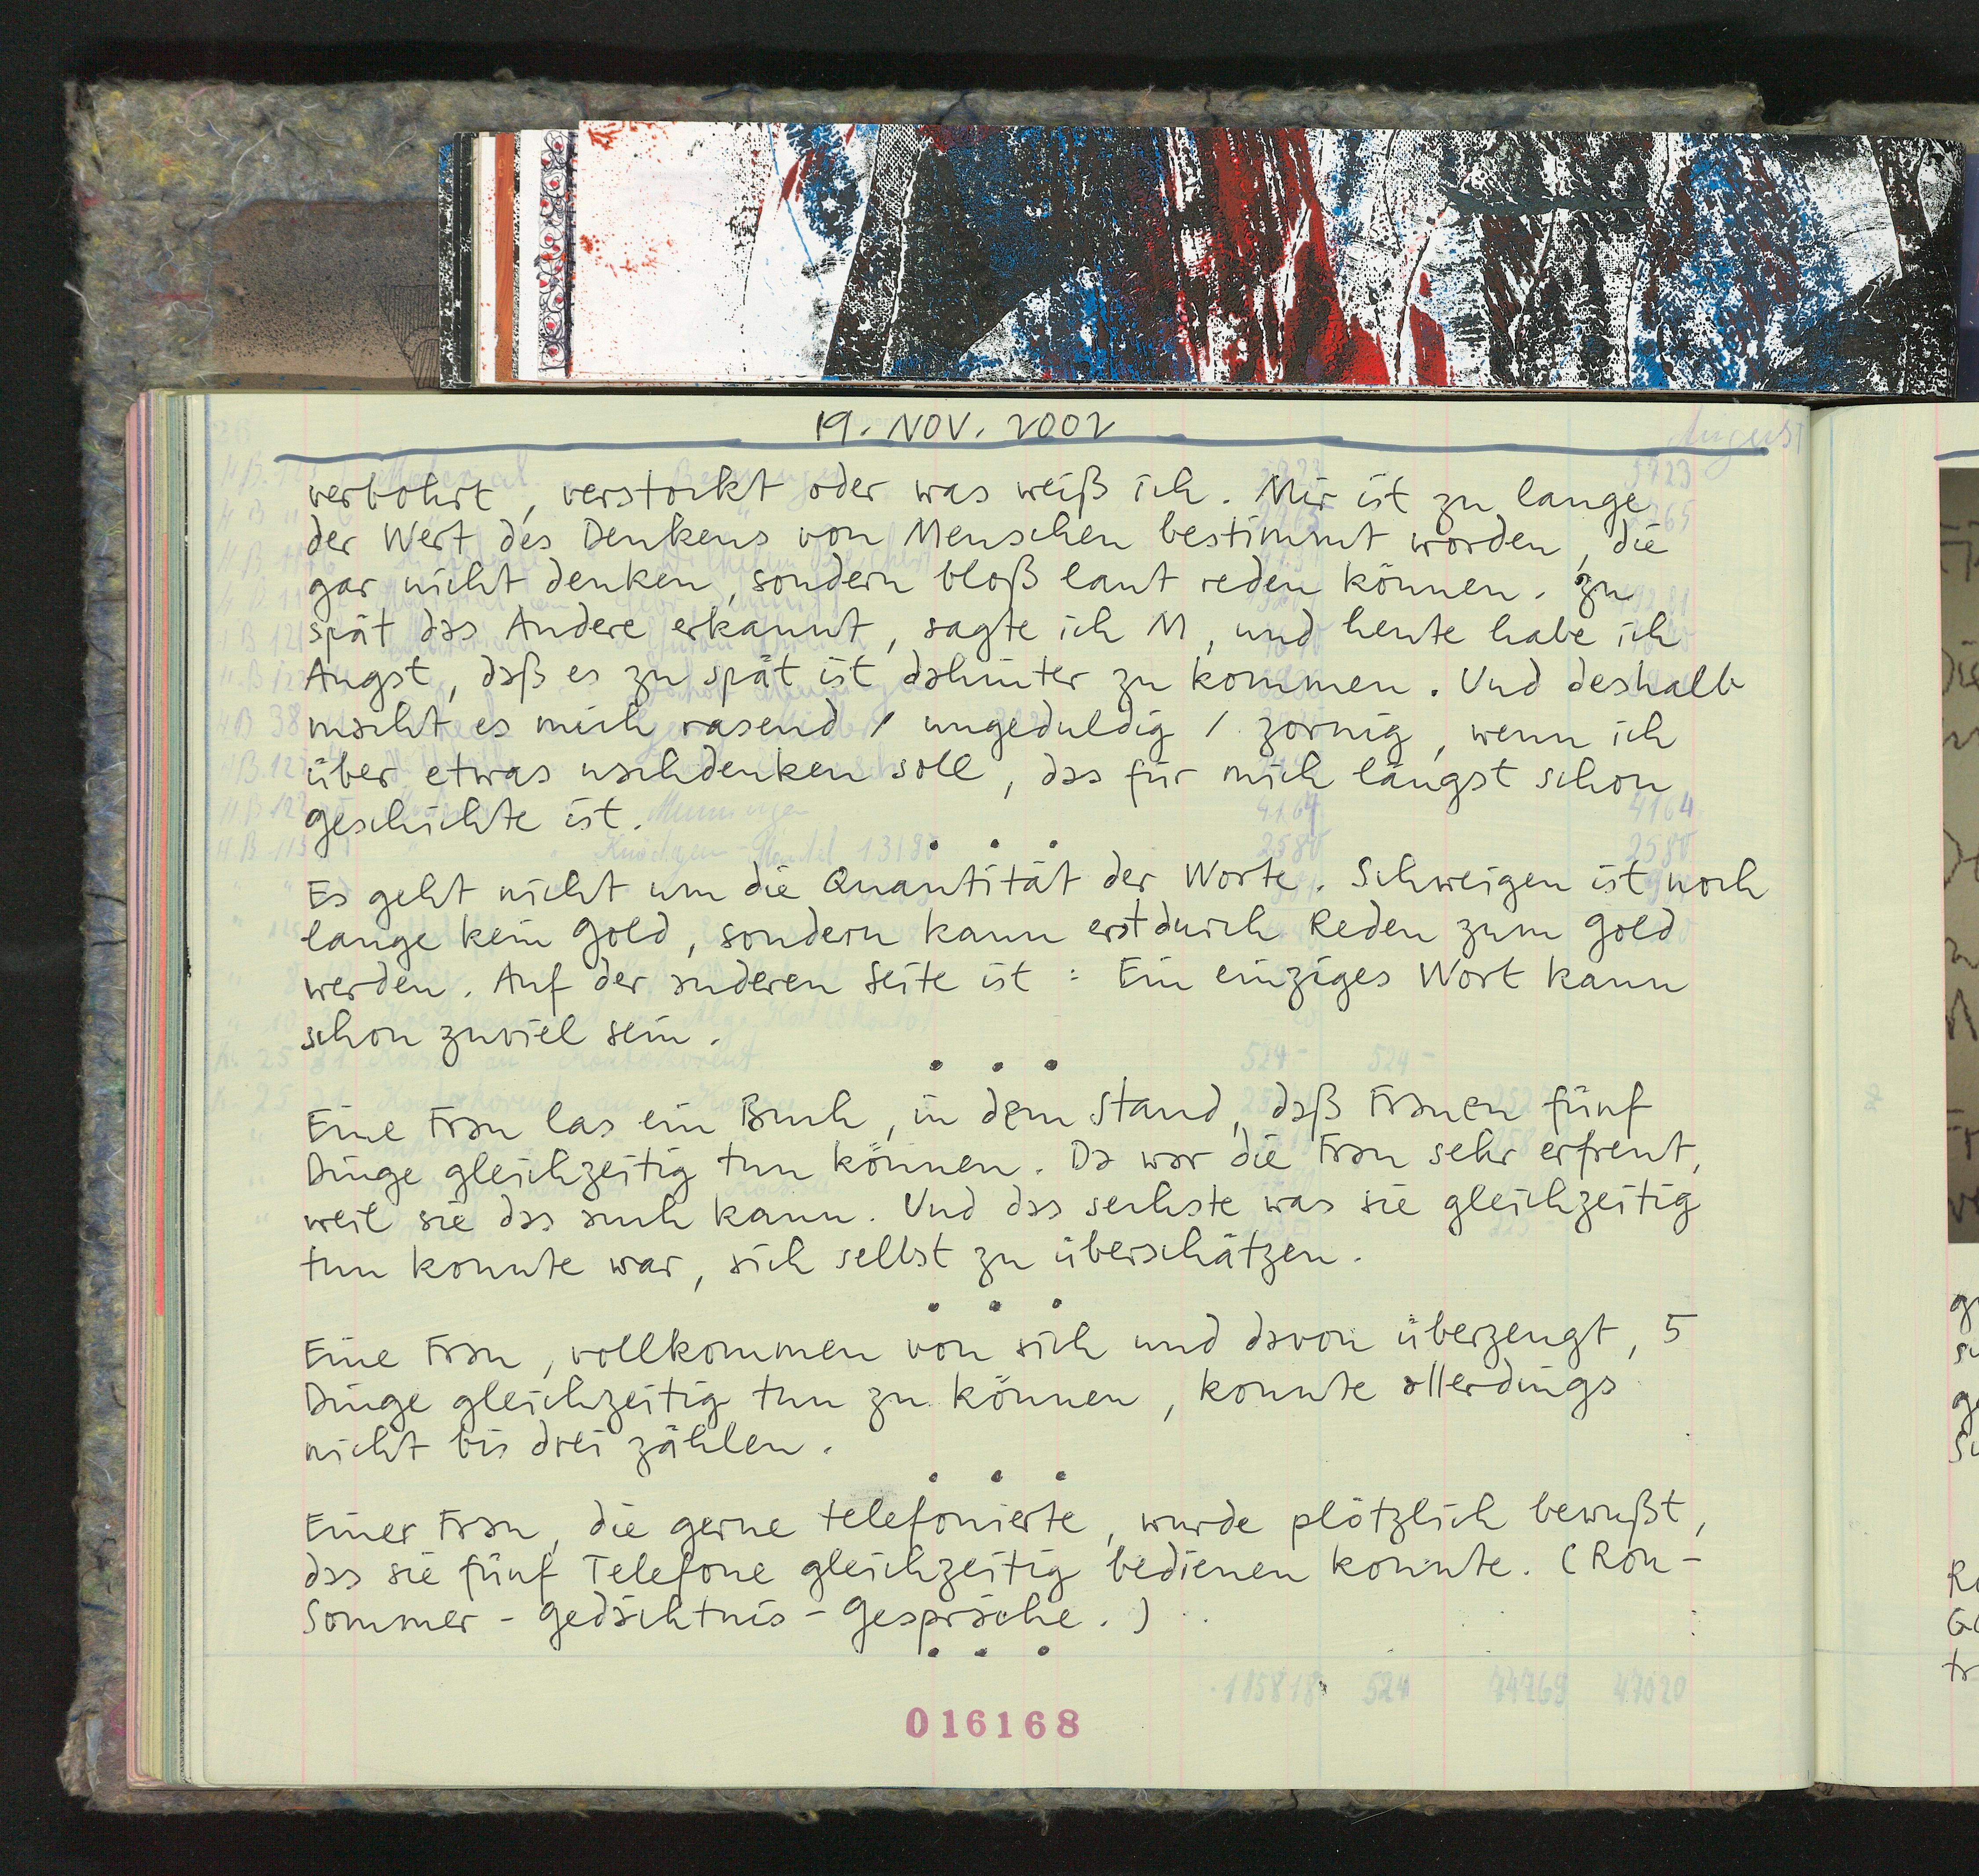 19. NOV. 2002
verbohrt, verstockt oder was weiß ich. Mir ist zu lange
der Wert des Denkens von Menschen bestimmt worden, die
gar nicht denken, sondern bloß laut reden können. Zu
spät das Andere erkannt, sagte ich M, und heute habe ich
Angst, daß es zu spät ist dahinter zu kommen. Und deshalb
macht es mich rasend / ungeduldig / zornig, wenn ich
über etwas nachdenken soll, das für mich längst schon
Geschichte ist.
. . .
Es geht nicht um die Quantität der Worte. Schweigen ist noch
lange kein Gold, sondern kann erst durch Reden zum Gold
werden. Auf der anderen Seite ist: Ein einziges Wort kann
schon zuviel sein.
. . .
Eine Frau las ein Buch, in dem stand, daß Frauen fünf
Dinge gleichzeitig tun können. Da war die Frau sehr erfreut,
weil sie das auch kann. Und das sechste was sie gleichzeitig
tun konnte war, sich selbst zu überschätzen.
. . .
Eine Frau, vollkommen von sich und davon überzeugt, 5
Dinge gleichzeitig tun zu können, konnte allerdings
nicht bis drei zählen.
. . .
Einer Frau, die gerne telefonierte, wurde plötzlich bewußt,
das sie fünf Telefone gleichzeitig bedienen konnte. (Ron-
Sommer-Gedächtnis-Gespräche.)
. . .
016168